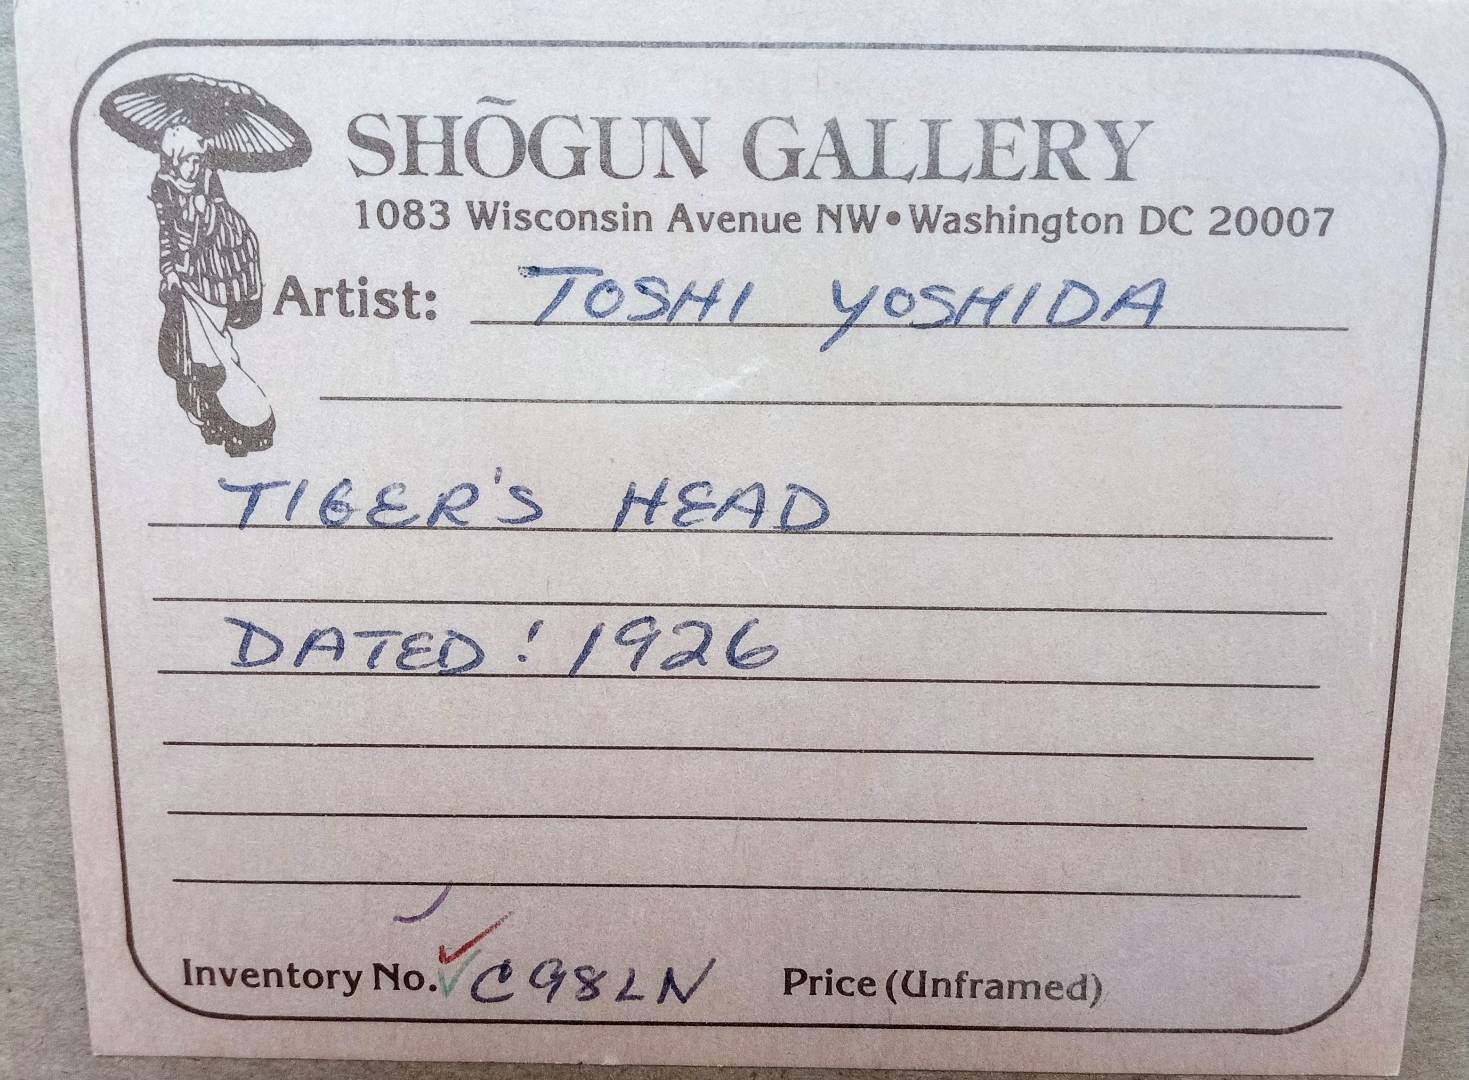 SHÕGUN GALLERY
1083 Wisconsin Avenue NW•Washington DC 20007
Artist: TOSHI YOSHIDA
TIGER'S HEAD
DATED: 1926
Inventory No. C98LN Price (Unframed)